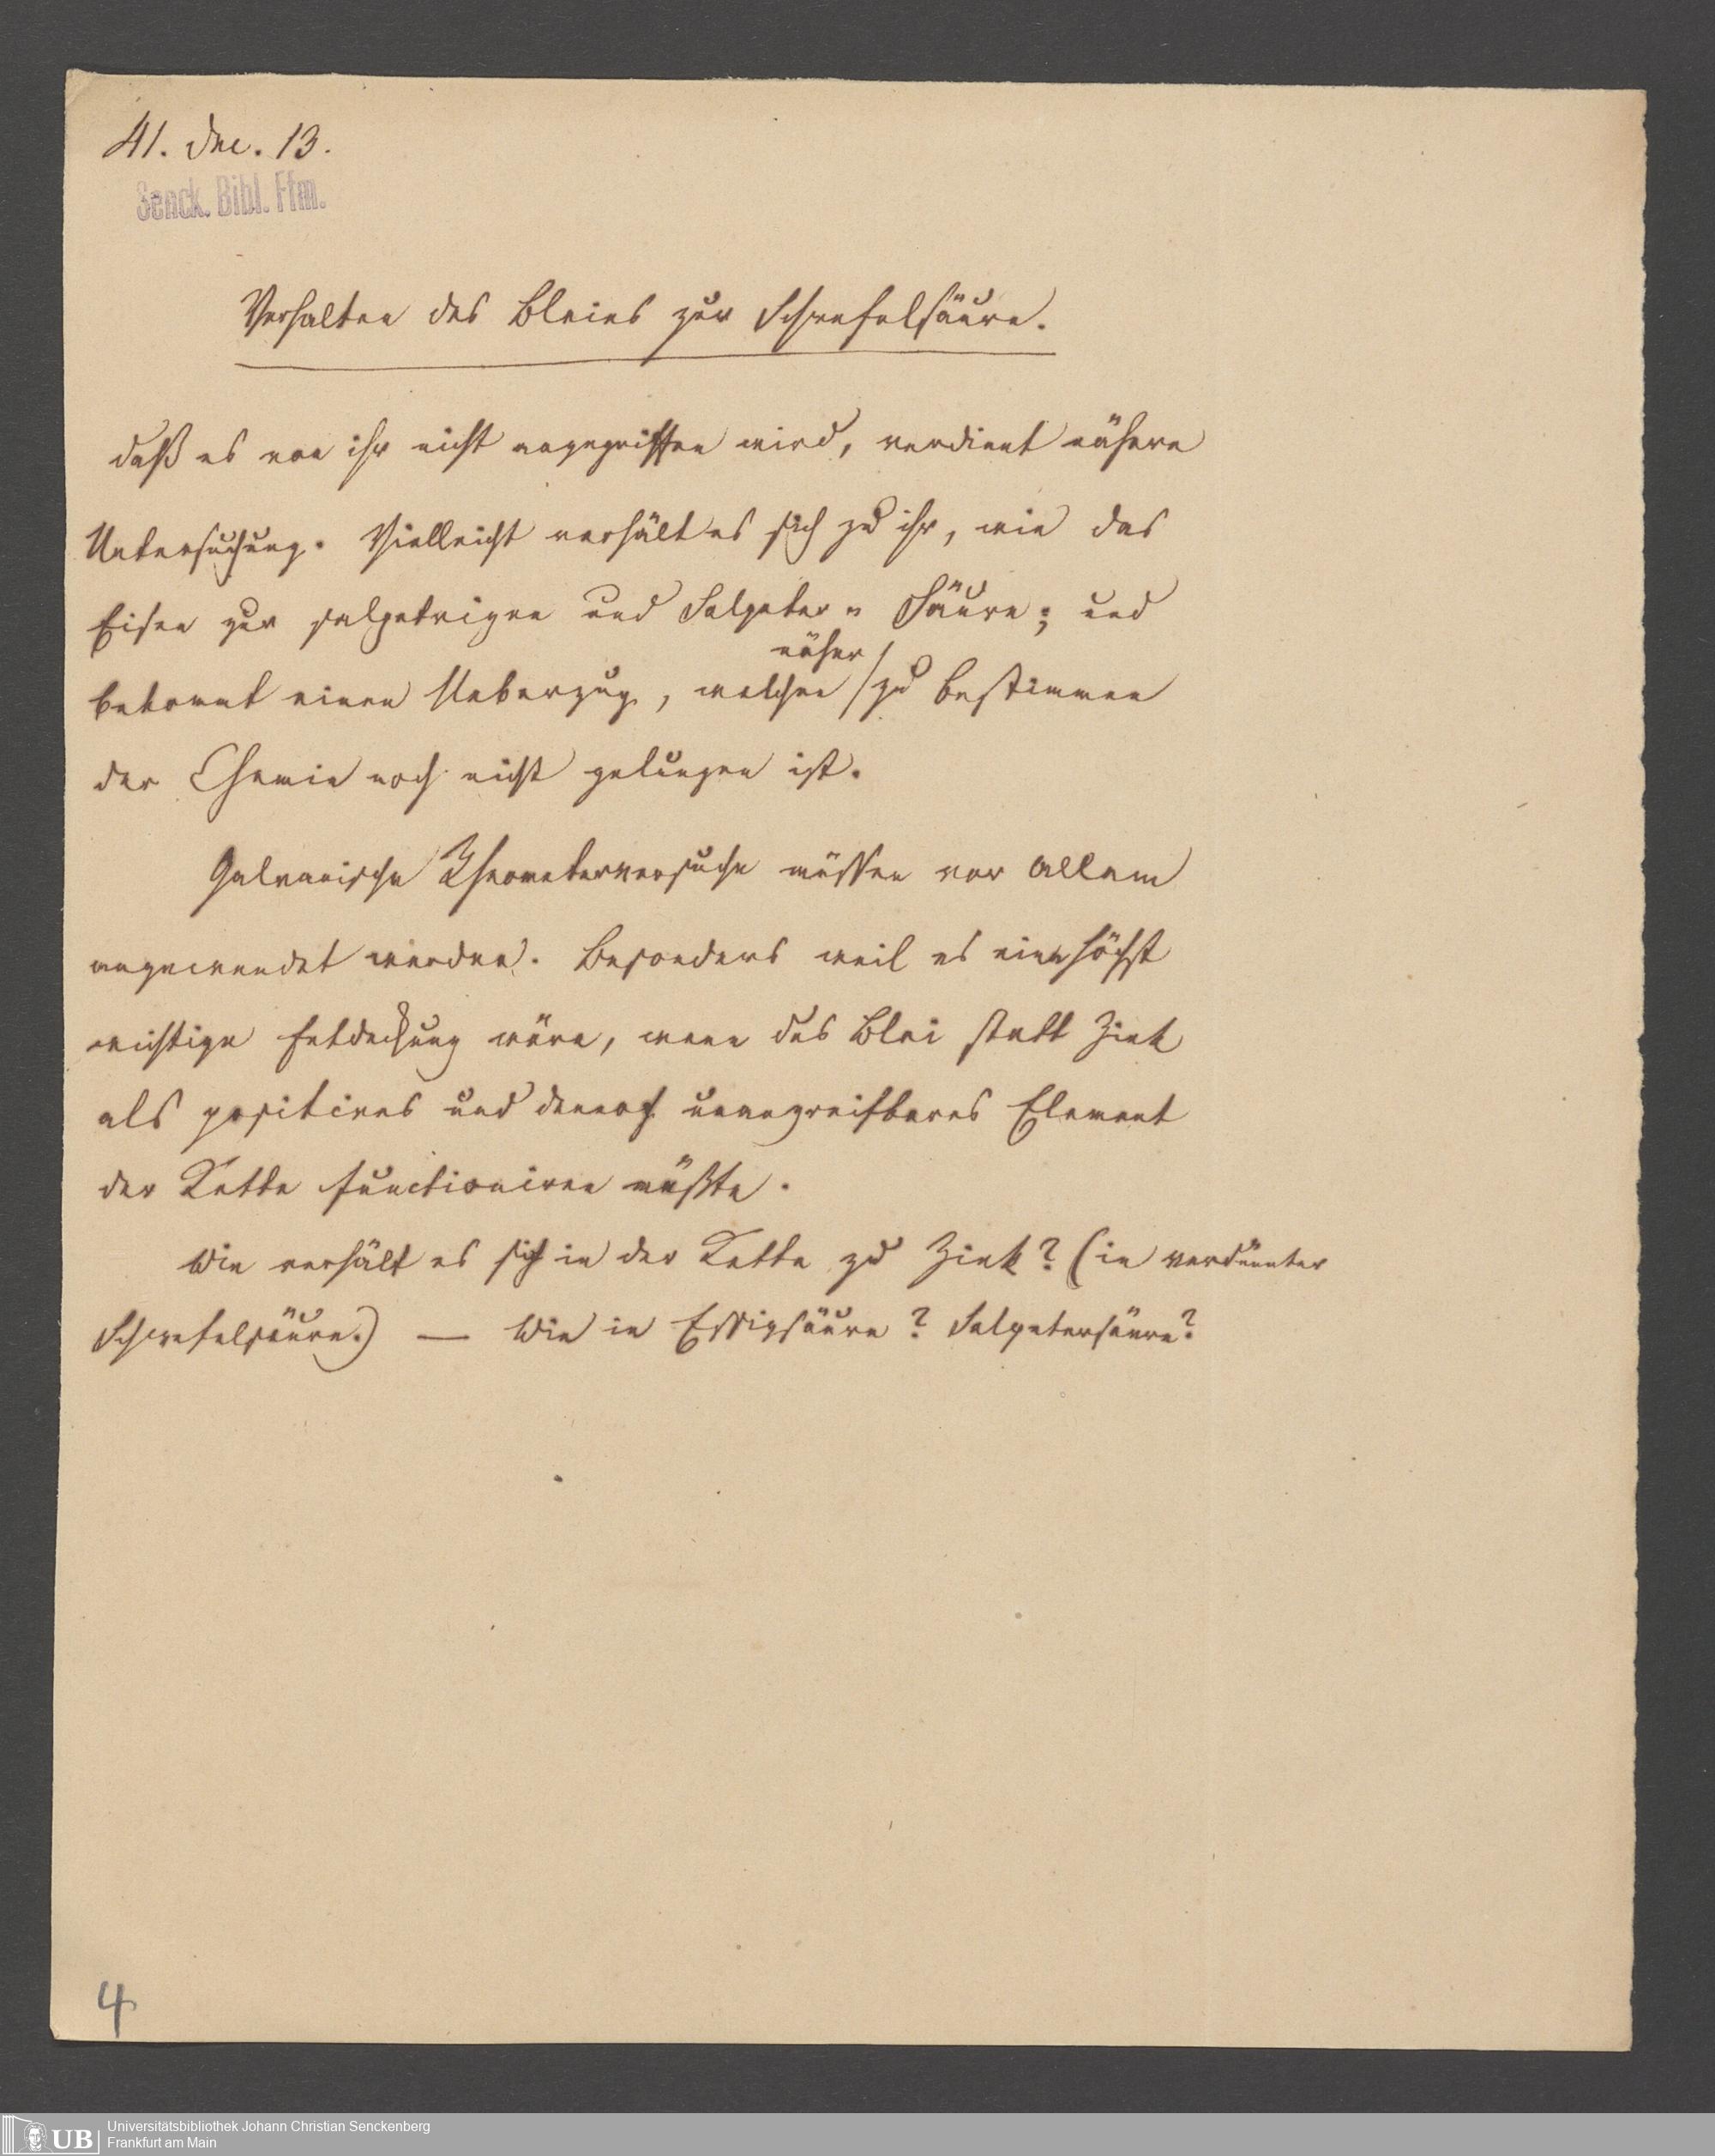 41. Dec. 13.
Senck. Bibl. Ffm.
Verhalten des Bleies zur Schwefelsäure.
Daß es von ihr nicht angegriffen wird, verdient nähere
Untersuchung. Vielleicht verhält es sich zu ihr, wie das
Eisen zur salpetrigen und Salpeter = Säure; und
näher
bekommt einen Ueberzug, welchen / zu bestimmen
der Chemie noch nicht gelungen ist.
Galvanische Rheometerversuche müssen vor allem
angewendet werden. Besonders weil es eine höchst
wichtige Entdeckung wäre, wenn das Blei statt Zink
als positives und dennoch unangreifbares Element
der Kette functioniren müßte.
Wie verhält es sich in der Kette zu Zink? (in verdünnter
Schwefelsäure.) — Wie in Essigsäure? Salpetersäure?
4
UB
Universitätsbibliothek Johann Christian Senckenberg
Frankfurt am Main